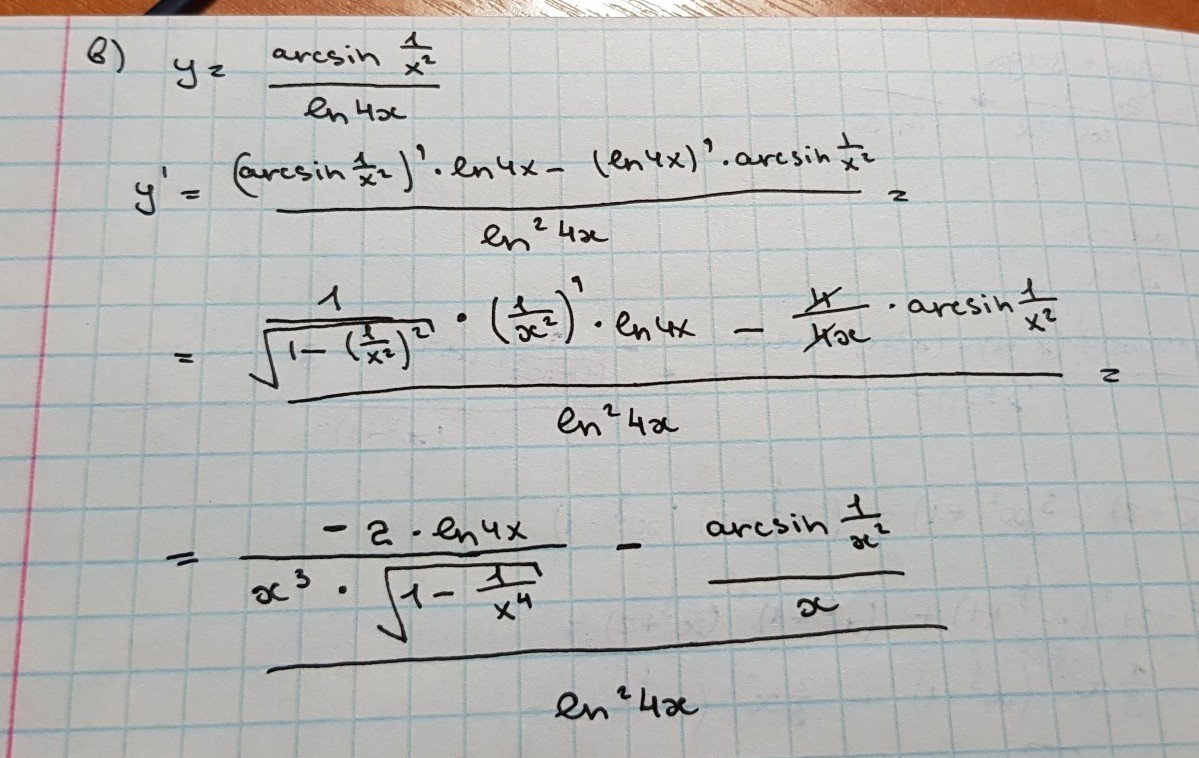 в) y = (arcsin 1/x²) / (ln 4x)
y' = ((arcsin 1/x²)' · ln 4x − (ln 4x)' · arcsin 1/x²) / (ln² 4x) =
= (1/√(1 − (1/x²)²) · (1/x²)' · ln 4x − 4/4x · arcsin 1/x²) / (ln² 4x) =
= ((−2 · ln 4x) / (x³ · √(1 − 1/x⁴)) − (arcsin 1/x²) / x) / (ln² 4x)